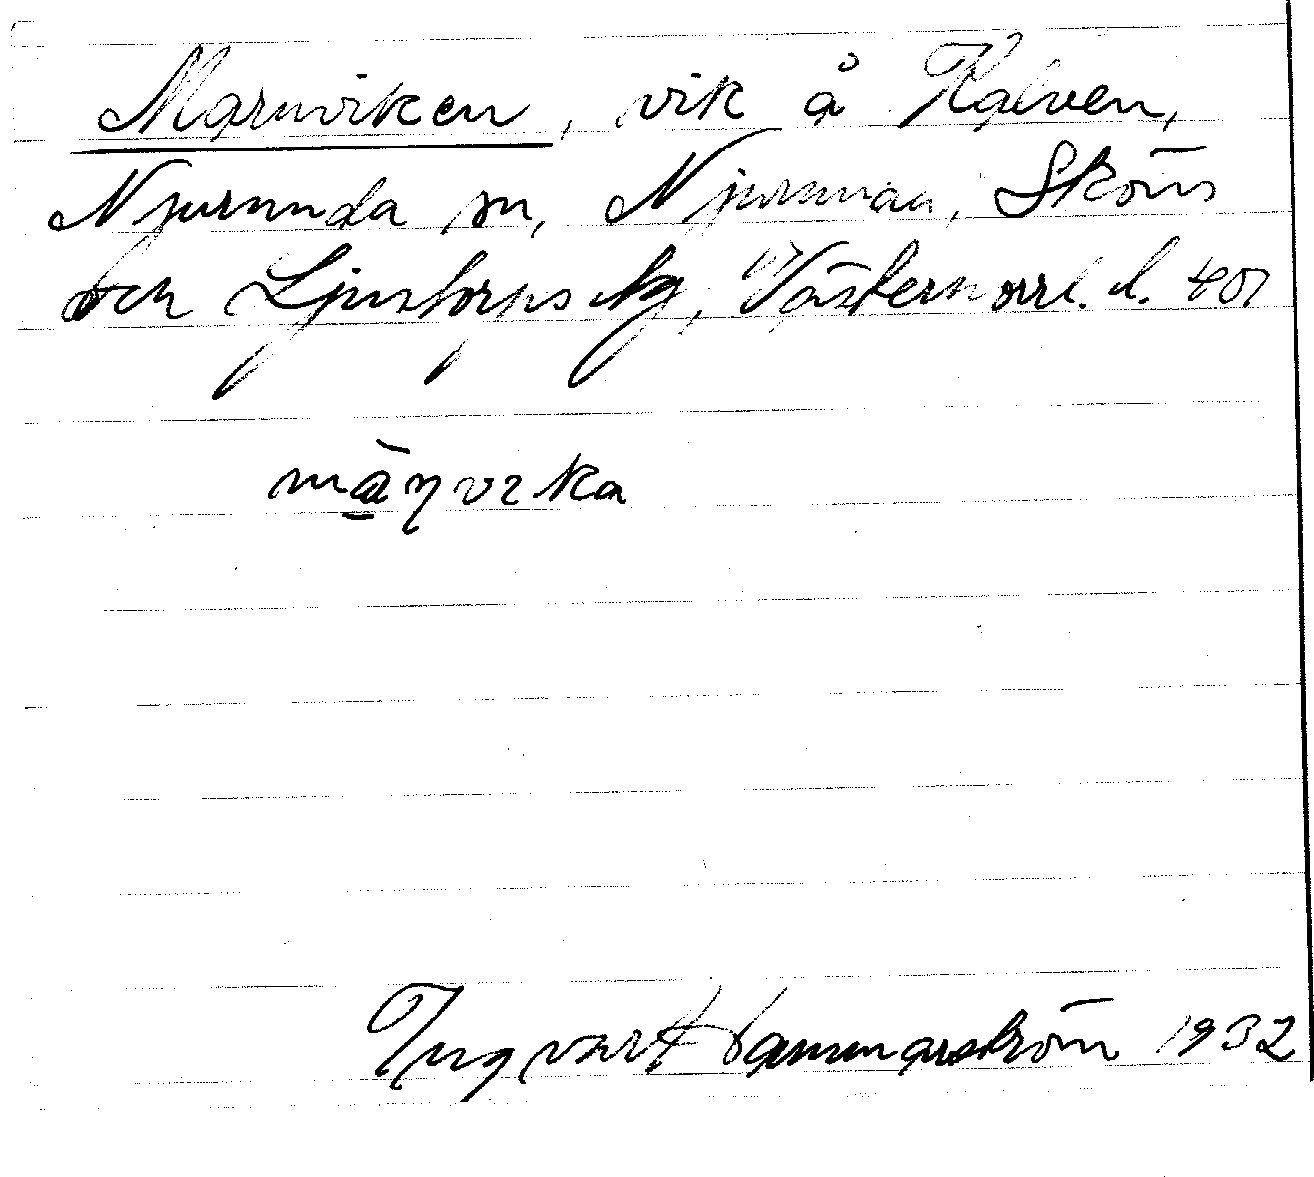 Marnviken, vik å Kalven,
Njurunda sn, Njurunda, Sköns
och Ljustorps tg, Västernorrl. l.
Ingvar Hammarström 1932